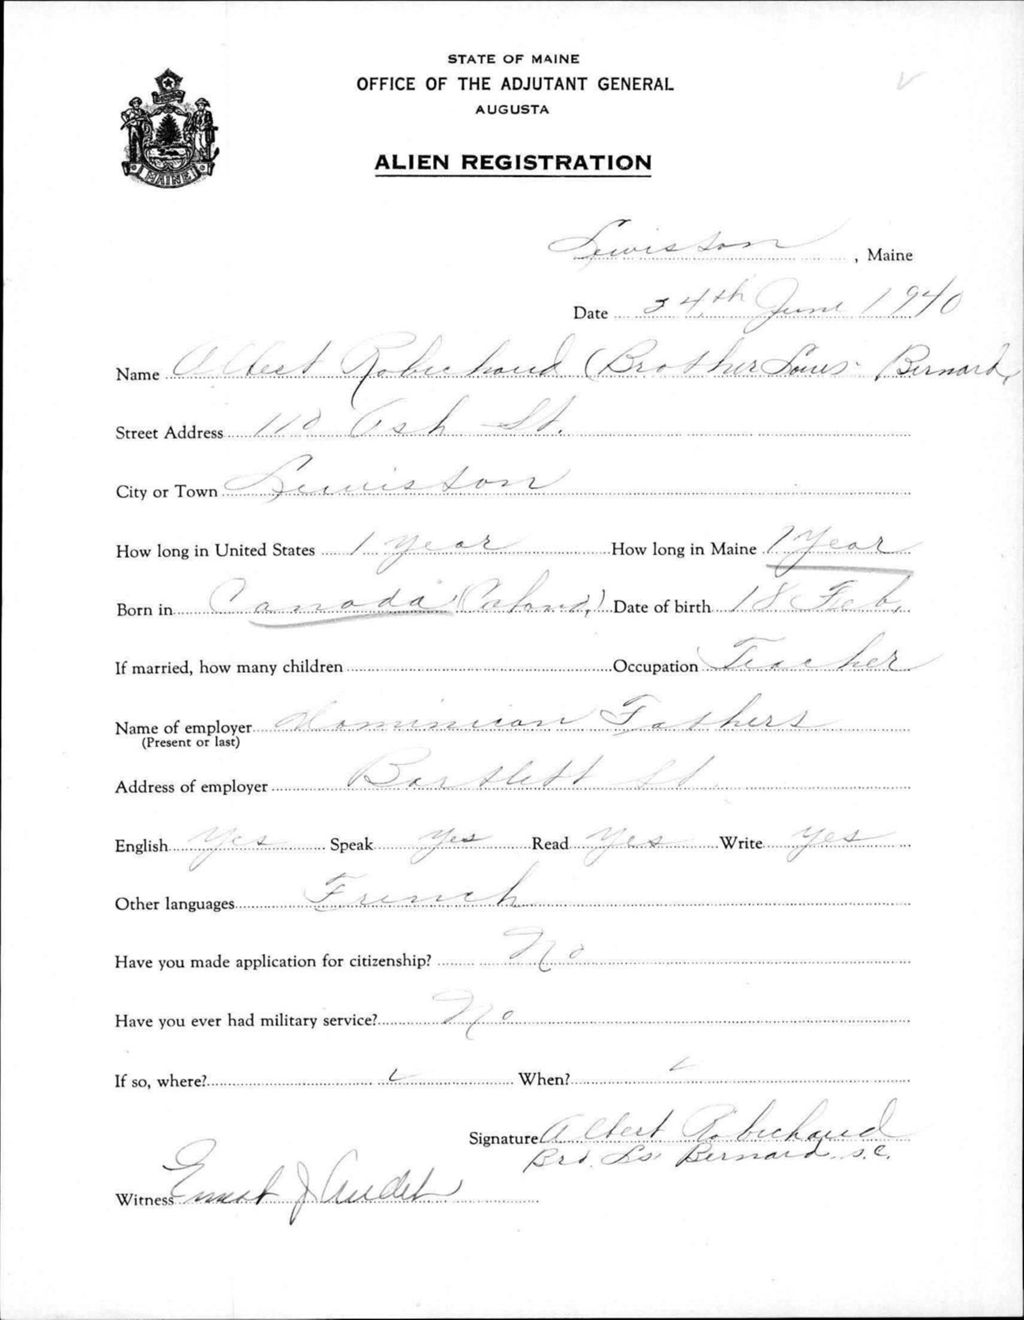 STATE OF MAINE
OFFICE OF THE ADJUTANT GENERAL
AUGUSTA
MAINE
ALIEN REGISTRATION
Lewiston, Maine
Date 24th June 1940
Name Albert Robichaud (Brother Louis-Bernard,
Street Address 110 Ash St.
City or Town Lewiston
How long in United States 1 year How long in Maine 1 Year
Born in Canada Date of birth 18 Feb.
If married, how many children Occupation Teacher
Name of employer Dominican Fathers
(Present or last)
Address of employer Bartlett St.
English Yes Speak Yes Read Yes Write Yes
Other languages French
Have you made application for citizenship? No
Have you ever had military service? No
If so, where? When?
Signature Albert Robichaud
Bro. Ls. Bernard, s.c.
Witness Ernest J Audet